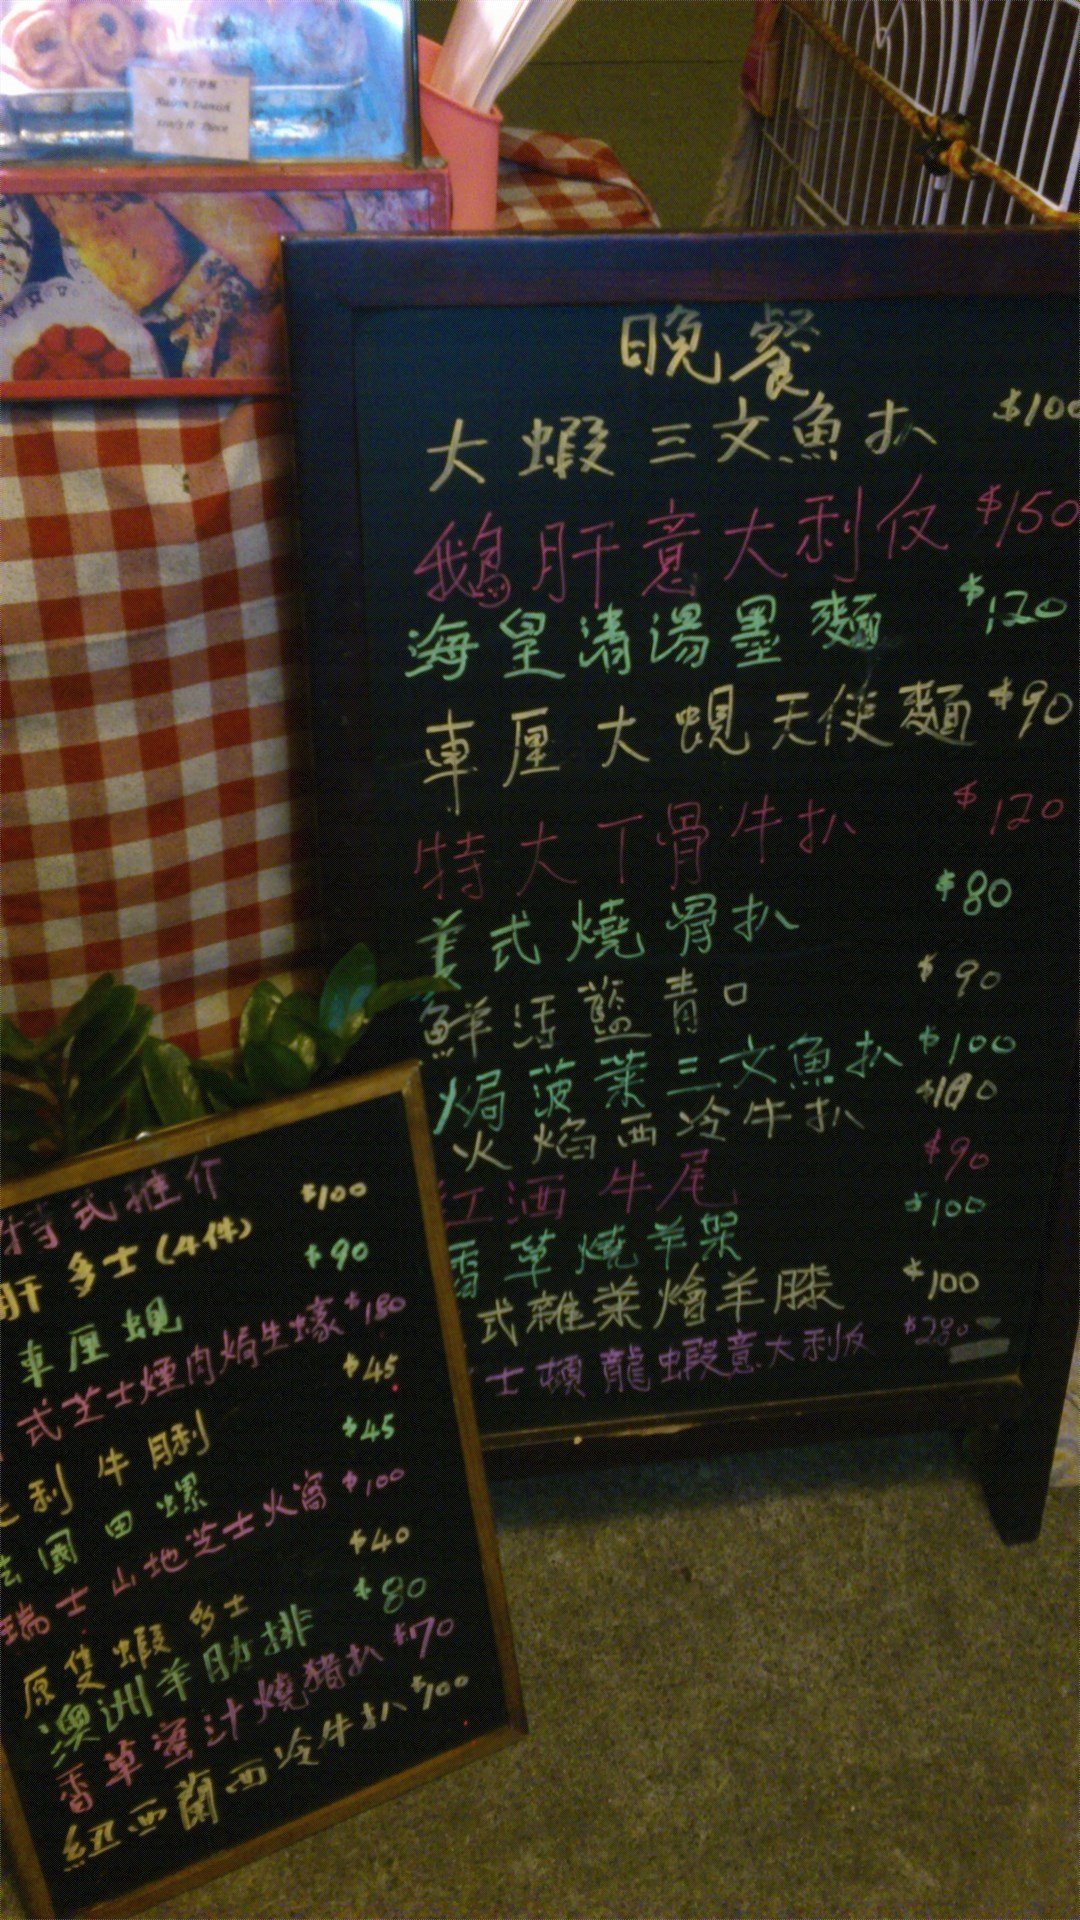 Raisin Danish
晚餐
大蝦三文魚扒 $100
鵝肝意大利伩 $150
海皇清湯墨麵 $120
車厘大蜆天使麵 $90
特大丁骨牛扒 $120
美式燒骨扒 $80
鮮活藍青口 $90
焗菠菜三文魚扒 $100
火焰西冷牛扒 $180
紅酒牛尾 $90
香草燒羊架 $100
式雜菜燴羊膝 $100
士頓龍蝦意大利伩 $280
特式推介
肝多士(4件) $100
車厘蜆 $90
式芝士煙肉焗生蠔 $180
利牛脷 $45
法國田螺 $45
瑞士山地芝士火窩 $100
原隻蝦多士 $40
澳洲羊肋排 $80
香草蜜汁燒豬扒 $70
紐西蘭西冷牛扒 $100